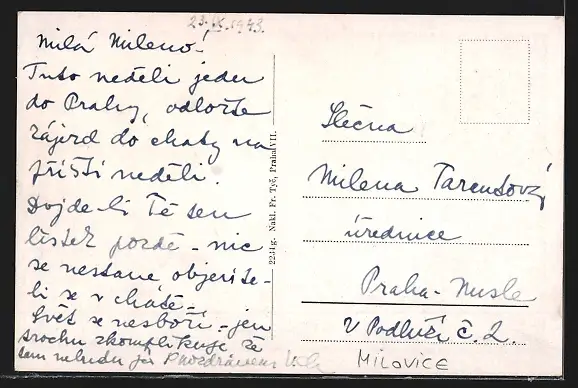 23.IX.1943.
Milá Mileno!
Tuto neděli jedu
do Prahy, odložte
zájezd do chaty na
příští neděli.
Dojde-li Tě ten
lístek pozdě - nic
se nestane objevíte-
li se v chatě -
Svět se nesboří - jen
trochu zkomplikuje že
tam nebudu já S pozdravem
2234g. Nakl. Fr. Tyč, Praha VII.
Slečna
Milena Tarentová
úřednice
Praha-Nusle
V Podluží č. 2.
MILOVICE